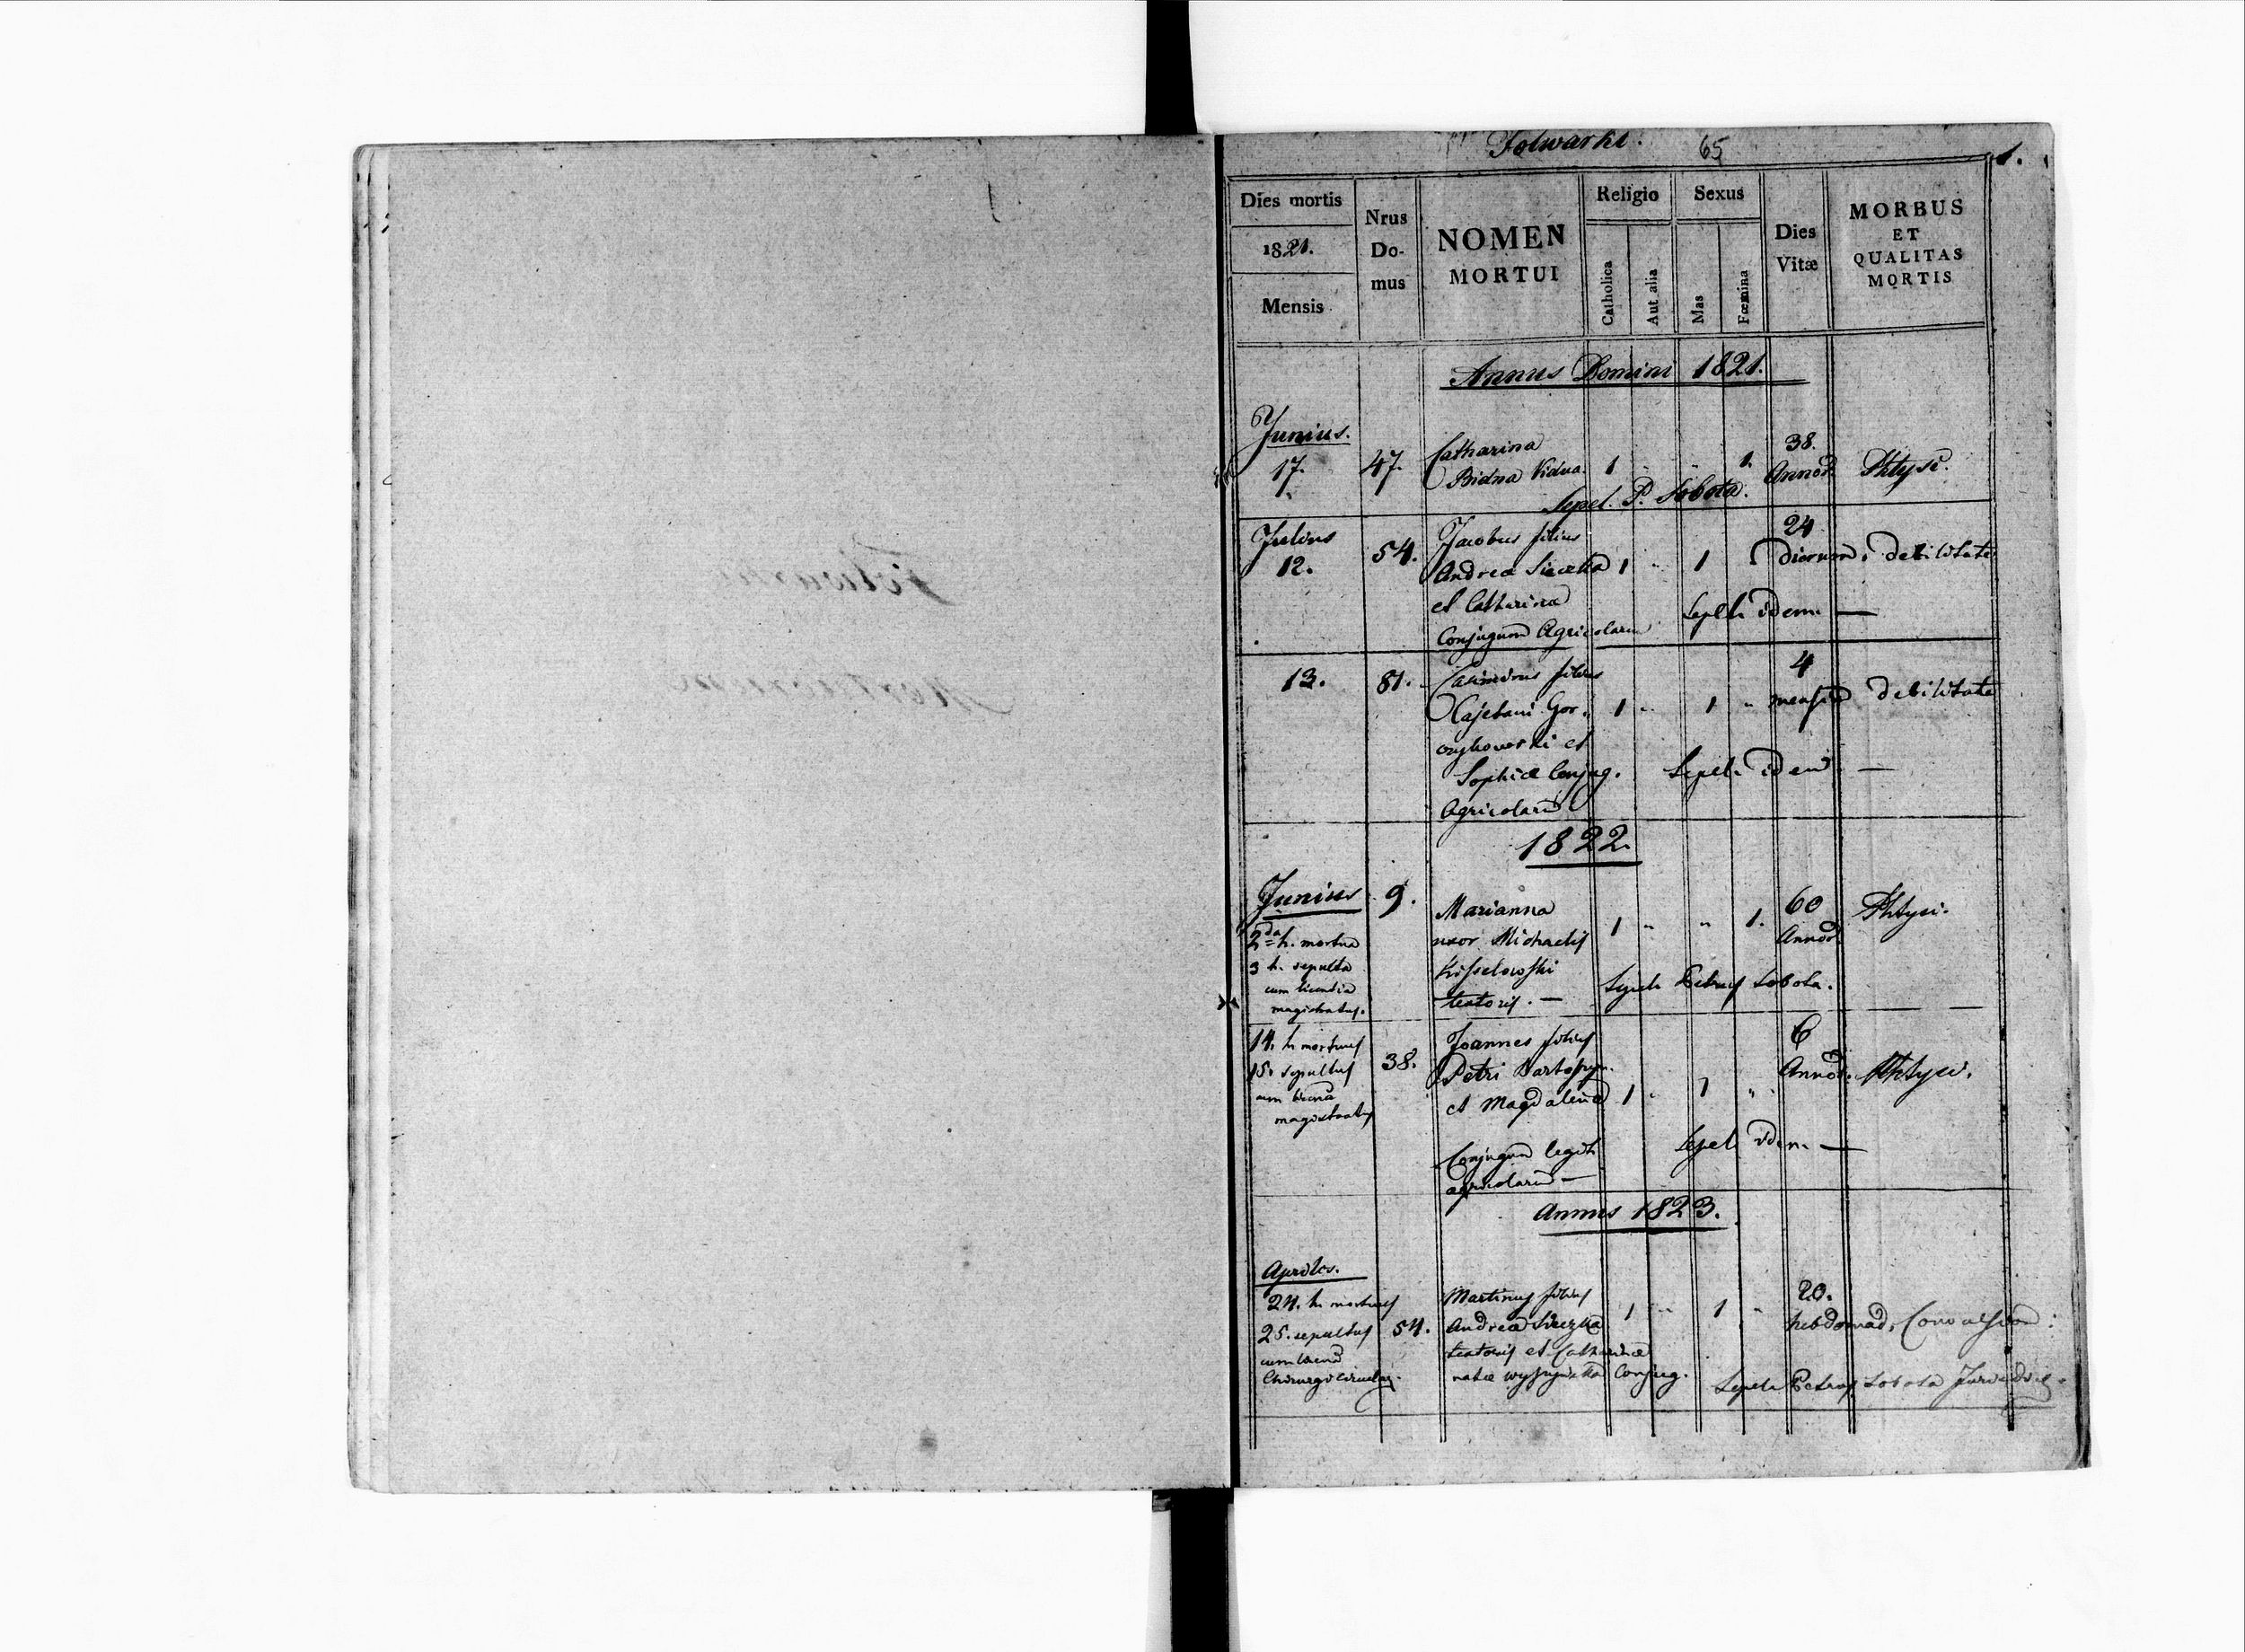 Folwarki. 65 1.
Dies mortis
1821.
Mensis
Nrus
Do-
mus
NOMEN
MORTUI
Religio
Catholica
Aut alia
Sexus
Mas
Fœmina
Dies
Vitæ
MORBUS
ET
QUALITAS
MORTIS
Annus Domini 1821.
Junius.
17. 47. Catharina
Bidna Vidua. 1 " " 1. 38. Annor. Phtysi.
Sepel. P. Sobota.
Julius
12. 54. Jacobus filius
Andreæ 1 " 1 24 dierum debilitate
et Catharinæ
Conjugum Agricolarum
Sepel. idem. —
13. 81. Casimirus filius
Cajetani Gor- 1 " 1 " 4 mensium debilitate
czykowski et
Sophiæ Conjug.
Agricolarum
Sepel. idem —
1822.
Junius 9. Marianna
2da h. mortua uxor Michaelis 1 " " 1. 60 Annor. Phtysi.
3 h. sepulta
cum licentia textoris. —
magistratus.
Sepel. Petrus Sobota.
14. h. mortuus 38. Joannes filius
15. sepultus Petri
cum et Magdalenæ 1 " 1 " 6 Annor. Phtysi.
magistratus
Conjugum legit.
agricolarum —
Sepel. idem. —
Annus 1823.
Aprilis.
24. h. mortuus Martinus filius
25. sepultus 54. Andreæ 1 " 1 " 20. hebdomad.
cum textoris et Catharinæ
Chirurgi natæ Conjug.
Sepel. Petrus Sobota
Folwarki
Mortuorum